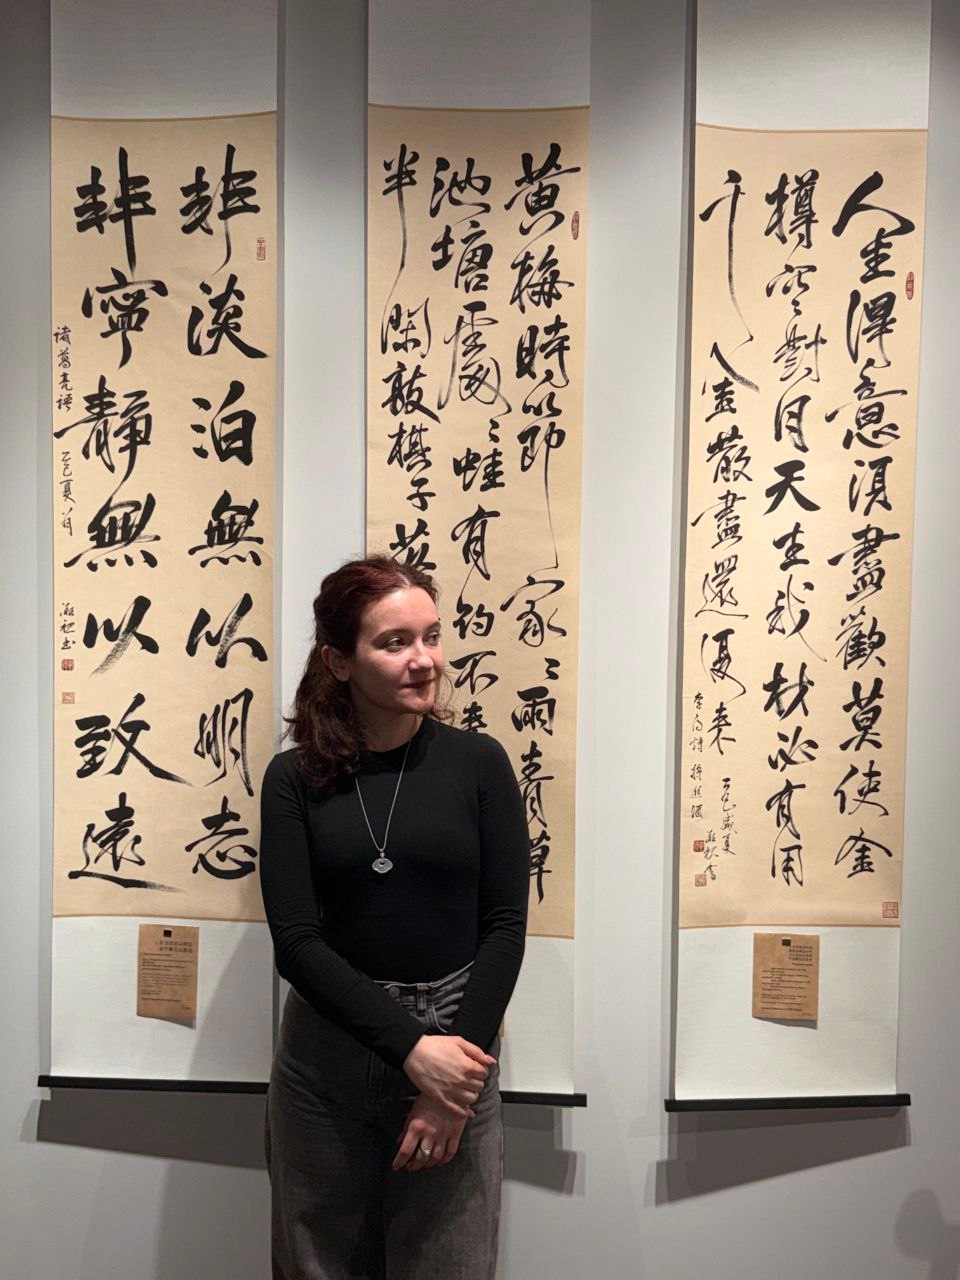 人生得意須盡歡莫使金
樽空對月天生我材必有用
千金散盡還復來
李白詩將進酒 乙巳盛夏 書
黃梅時節家〻雨青草
池塘處〻蛙有約不來
半閑敲棋子落
非淡泊無以明志
非寧靜無以致遠
諸葛亮語 乙巳夏月 書